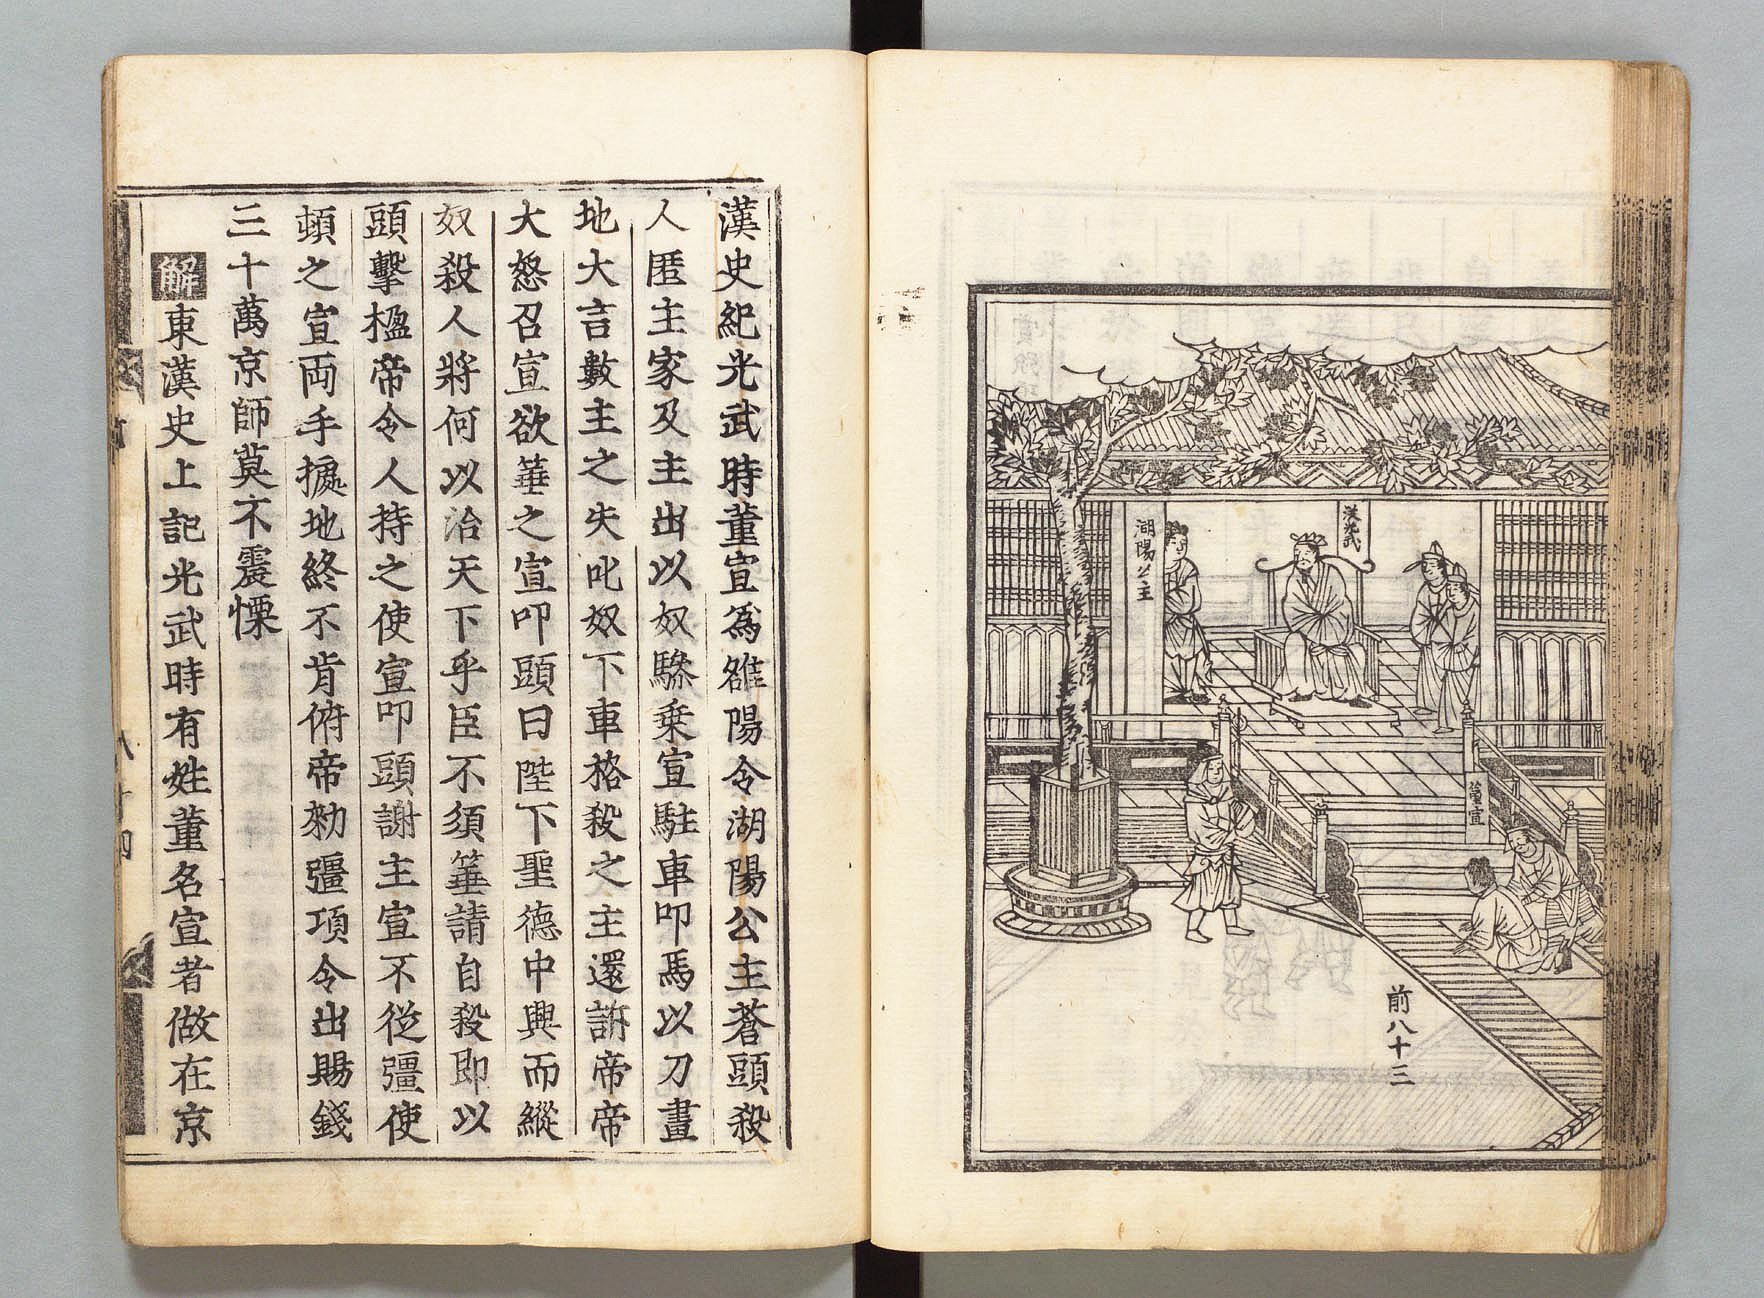 漢光武
湖陽公主
董宣
前八十三
漢史紀光武時董宣爲雒陽令湖陽公主蒼頭殺
人匿主家及主出以奴驂乗宣駐車叩馬以刀畫
地大言數主之失叱奴下車格殺之主還訴帝帝
大怒召宣欲箠之宣叩頭曰陛下聖德中興而縱
奴殺人將何以治天下乎臣不須箠請自殺即以
頭擊楹帝令人持之使宣叩頭謝主宣不從彊使
頓之宣両手據地終不肯俯帝勑彊項令出賜錢
三十萬京師莫不震慄
解東漢史上記光武時有姓董名宣者做在京